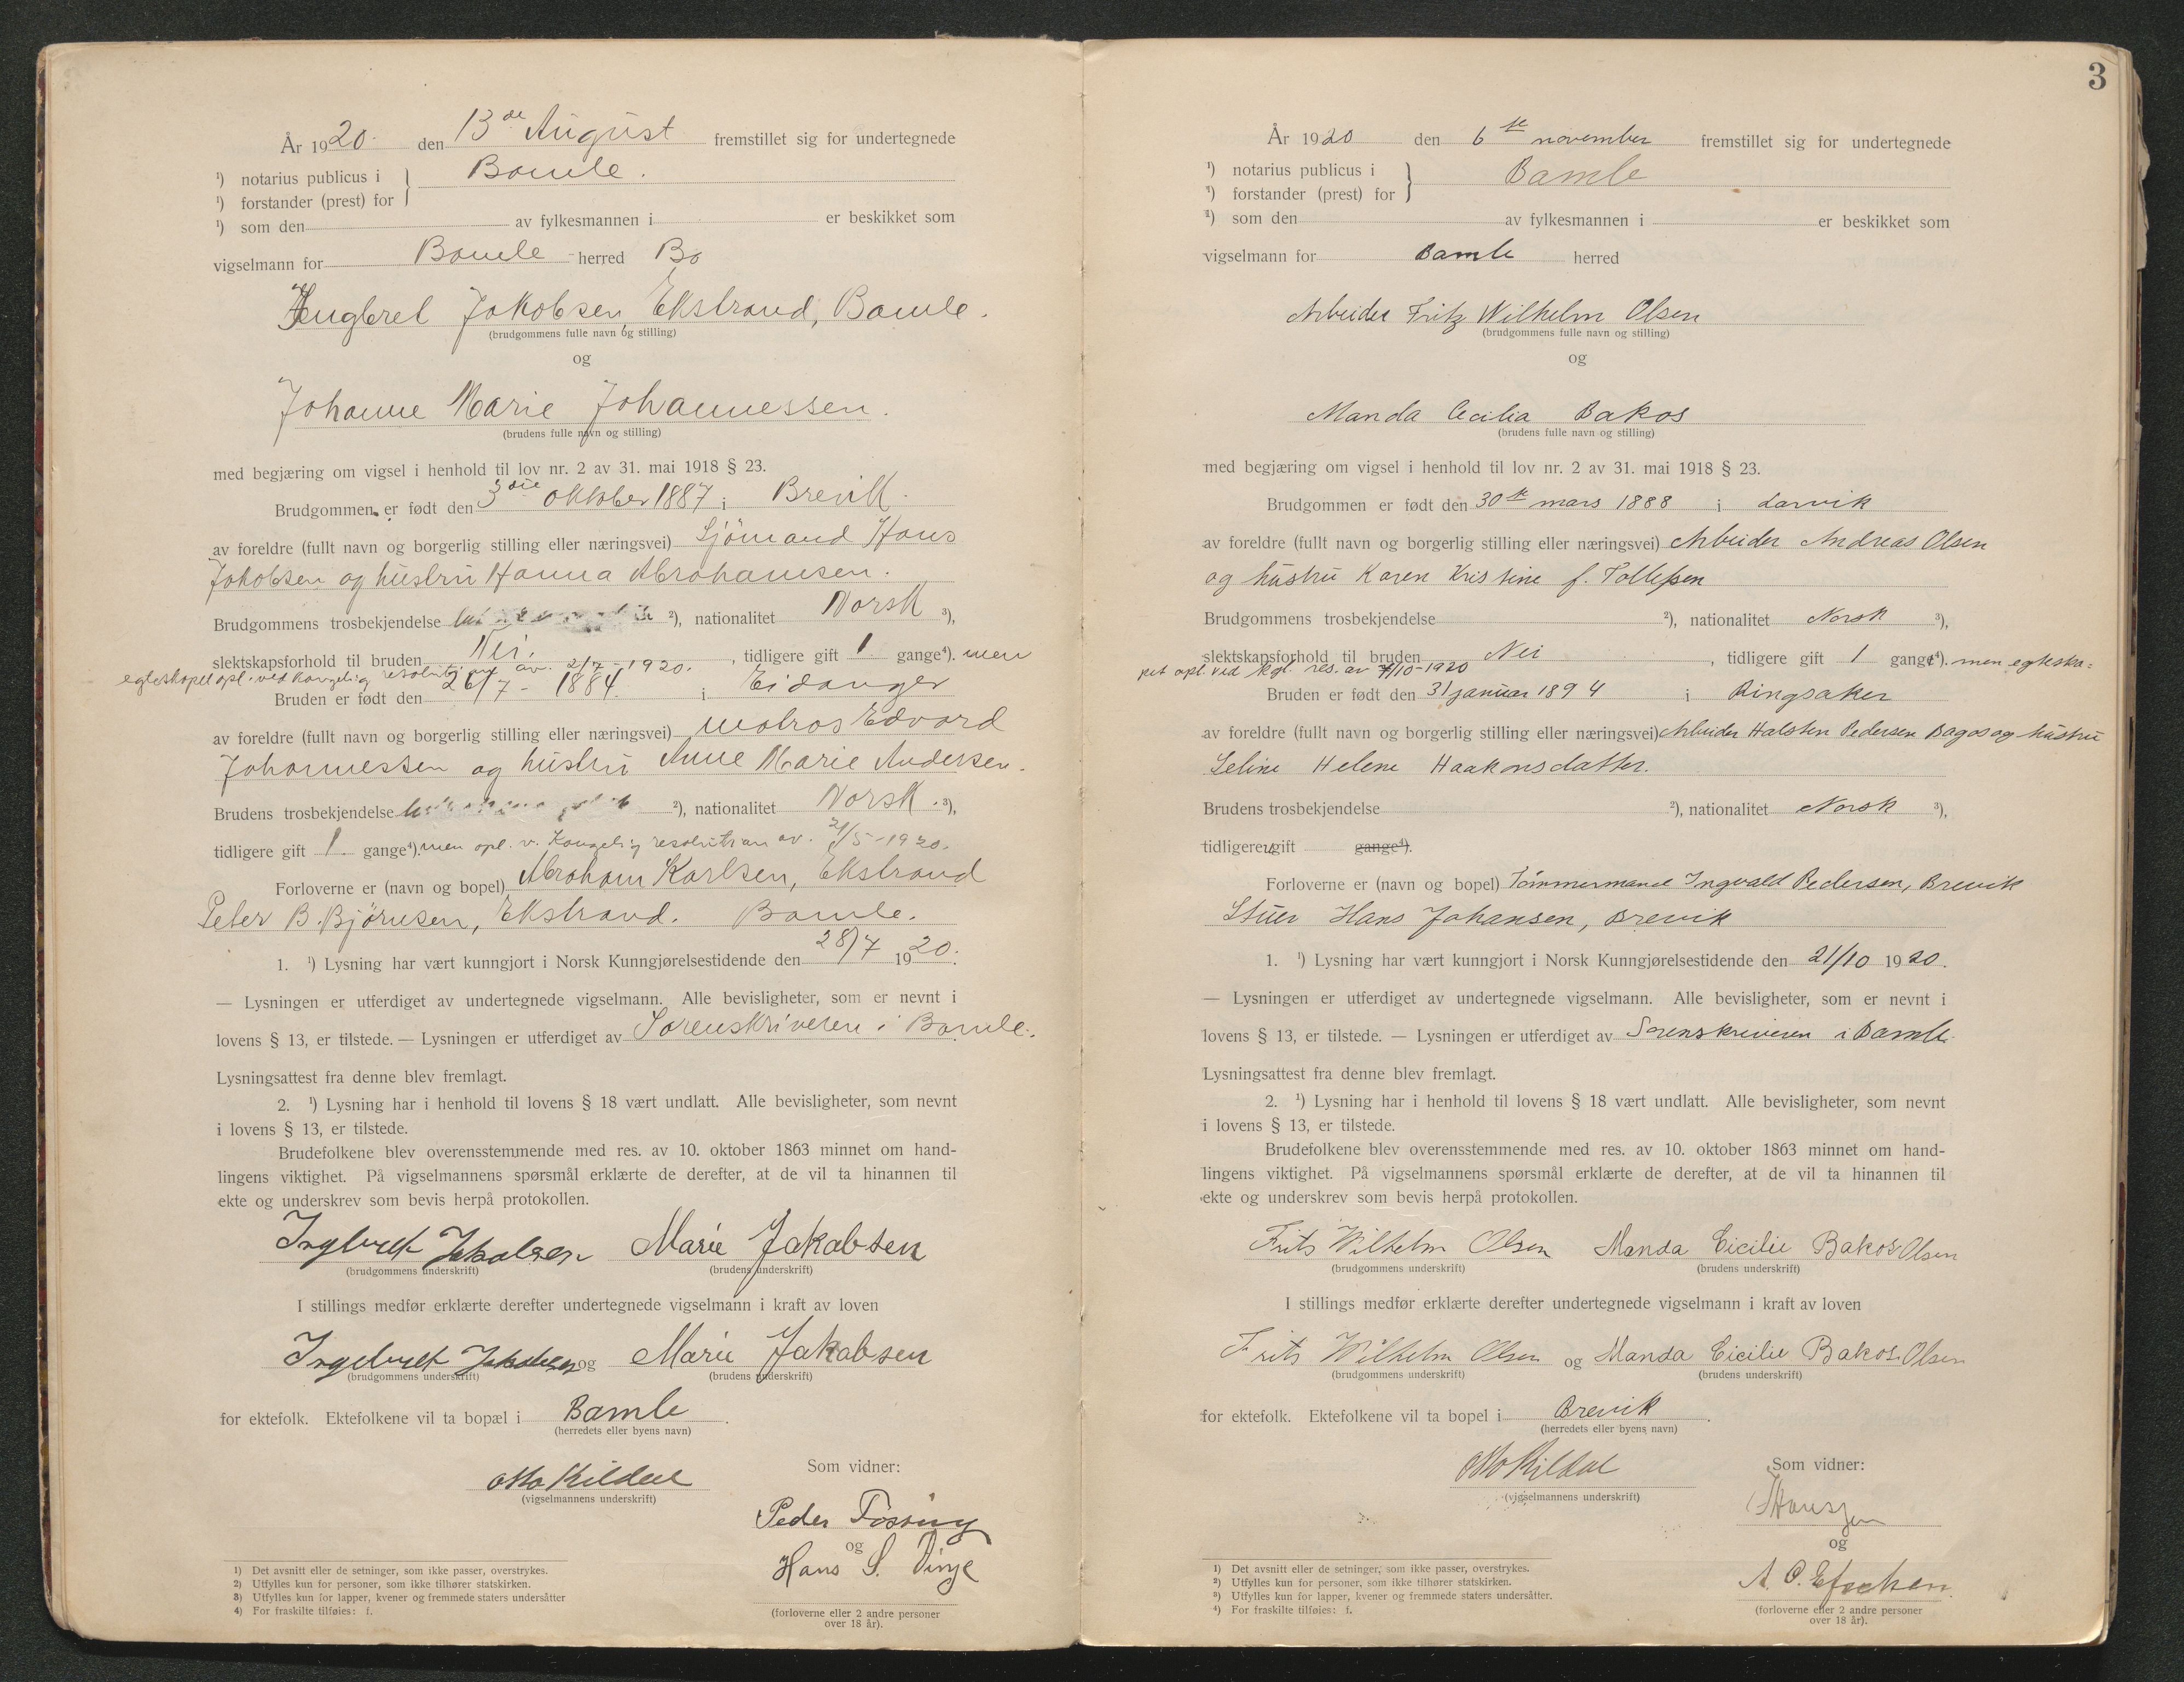 År 1920. den 13de August fremstillet sig for undertegnede
¹) notarius publicus i
¹) forstander (prest) for } Bamle.
¹) som den av fylkesmannen i er beskikket som
vigselmann for Bamle herred Ba
Engbret Jakobsen, Ekstrand, Bamle.
(brudgommens fulle navn og stilling)
og
Johanne Marie Johannessen.
(brudens fulle navn og stilling)
med begjæring om vigsel i henhold til lov nr. 2 av 31. mai 1918 § 23.
Brudgommen er født den 3die oktober 1887 i Brevik.
av foreldre (fullt navn og borgerlig stilling eller næringsvei) Sjømand Hans
Jakobsen og hustru Hanna Abrahamsen.
Brudgommens trosbekjendelse ²), nationalitet Norsk ³),
slektskapsforhold til bruden Nei. , tidligere gift 1 gange⁴). men
egteskapet opl. ved kongelig resolution av. 2/7-1920.
Bruden er født den 26/7 - 1884. i Eidanger
av foreldre (fullt navn og borgerlig stilling eller næringsvei) matros Edvard
Johannessen og hustru Anne Marie Andersen.
Brudens trosbekjendelse ²), nationalitet Norsk. ³),
tidligere gift 1 gange⁴). men opl. v. Kongelig resolution av. 21/5-1920.
Forloverne er (navn og bopel) Abraham Karlsen, Ekstrand
Peter B. Bjørnsen, Ekstrand. Bamle.
1. ¹) Lysning har vært kunngjort i Norsk Kunngjørelsestidende den 28/7 1920.
— Lysningen er utferdiget av undertegnede vigselmann. Alle bevisligheter, som er nevnt i
lovens § 13, er tilstede. — Lysningen er utferdiget av Sorenskriveren i Bamle.
Lysningsattest fra denne blev fremlagt.
2. ¹) Lysning har i henhold til lovens § 18 vært undlatt. Alle bevisligheter, som nevnt
i lovens § 13, er tilstede.
Brudefolkene blev overensstemmende med res. av 10. oktober 1863 minnet om hand-
lingens viktighet. På vigselmannens spørsmål erklærte de derefter, at de vil ta hinannen til
ekte og underskrev som bevis herpå protokollen.
Ingebrett Jakobsen Marie Jakabsen
(brudgommens underskrift) (brudens underskrift)
I stillings medfør erklærte derefter undertegnede vigselmann i kraft av loven
Ingebrett Jakobsen og Marie Jakabsen
(brudgommens underskrift) (brudens underskrift)
for ektefolk. Ektefolkene vil ta bopæl i Bamle .
(herredets eller byens navn)
Otto Kildal
(vigselmannens underskrift)
Som vidner:
Peder Fossing
og
Hans S. Vinje
(forloverne eller 2 andre personer
over 18 år).
1) Det avsnitt eller de setninger, som ikke passer, overstrykes.
2) Utfylles kun for personer, som ikke tilhører statskirken.
3) Utfylles kun for lapper, kvener og fremmede staters undersåtter
4) For fraskilte tilføies: f.
3
År 1920 den 6te november fremstillet sig for undertegnede
¹) notarius publicus i
¹) forstander (prest) for } Bamle
¹) som den av fylkesmannen i er beskikket som
vigselmann for Bamle herred
Arbeider Fritz Wilhelm Olsen
(brudgommens fulle navn og stilling)
og
Manda Cecilia Bakos
(brudens fulle navn og stilling)
med begjæring om vigsel i henhold til lov nr. 2 av 31. mai 1918 § 23.
Brudgommen er født den 30te mars 1888 i Larvik
av foreldre (fullt navn og borgerlig stilling eller næringsvei) Arbeider Andreas Olsen
og hustru Karen Kristine f. Tollefsen
Brudgommens trosbekjendelse ²), nationalitet Norsk ³),
slektskapsforhold til bruden Nei , tidligere gift 1 gange⁴). men egteska-
pet opl. ved kgl. res. av 7/10-1920
Bruden er født den 31 januar 1894 i Ringsaker
av foreldre (fullt navn og borgerlig stilling eller næringsvei) Arbeider Halsten Pedersen Bagos og hustru
Seline Helene Haakonsdatter.
Brudens trosbekjendelse ²), nationalitet Norsk ³),
tidligere ugift gange⁴).
Forloverne er (navn og bopel) Tømmermand Ingvald Pedersen, Brevik
Stuer Hans Johansen, Brevik
1. ¹) Lysning har vært kunngjort i Norsk Kunngjørelsestidende den 21/10 1920.
— Lysningen er utferdiget av undertegnede vigselmann. Alle bevisligheter, som er nevnt i
lovens § 13, er tilstede. — Lysningen er utferdiget av Sorenskriveren i Bamle
Lysningsattest fra denne blev fremlagt.
2. ¹) Lysning har i henhold til lovens § 18 vært undlatt. Alle bevisligheter, som nevnt
i lovens § 13, er tilstede.
Brudefolkene blev overensstemmende med res. av 10. oktober 1863 minnet om hand-
lingens viktighet. På vigselmannens spørsmål erklærte de derefter, at de vil ta hinannen til
ekte og underskrev som bevis herpå protokollen.
Frits Wilhelm Olsen Manda Cicilie Bakos Olsen
(brudgommens underskrift) (brudens underskrift)
I stillings medfør erklærte derefter undertegnede vigselmann i kraft av loven
Frits Wilhelm Olsen og Manda Cicilie Bakos Olsen
(brudgommens underskrift) (brudens underskrift)
for ektefolk. Ektefolkene vil ta bopel i Brevik .
(herredets eller byens navn)
Otto Kildal
(vigselmannens underskrift)
Som vidner:
og
A. O.
(forloverne eller 2 andre personer
over 18 år).
¹) Det avsnitt eller de setninger, som ikke passer, overstrykes.
²) Utfylles kun for personer, som ikke tilhører statskirken.
³) Utfylles kun for lapper, kvener og fremmede staters undersåtter.
⁴) For fraskilte tilføies: f.